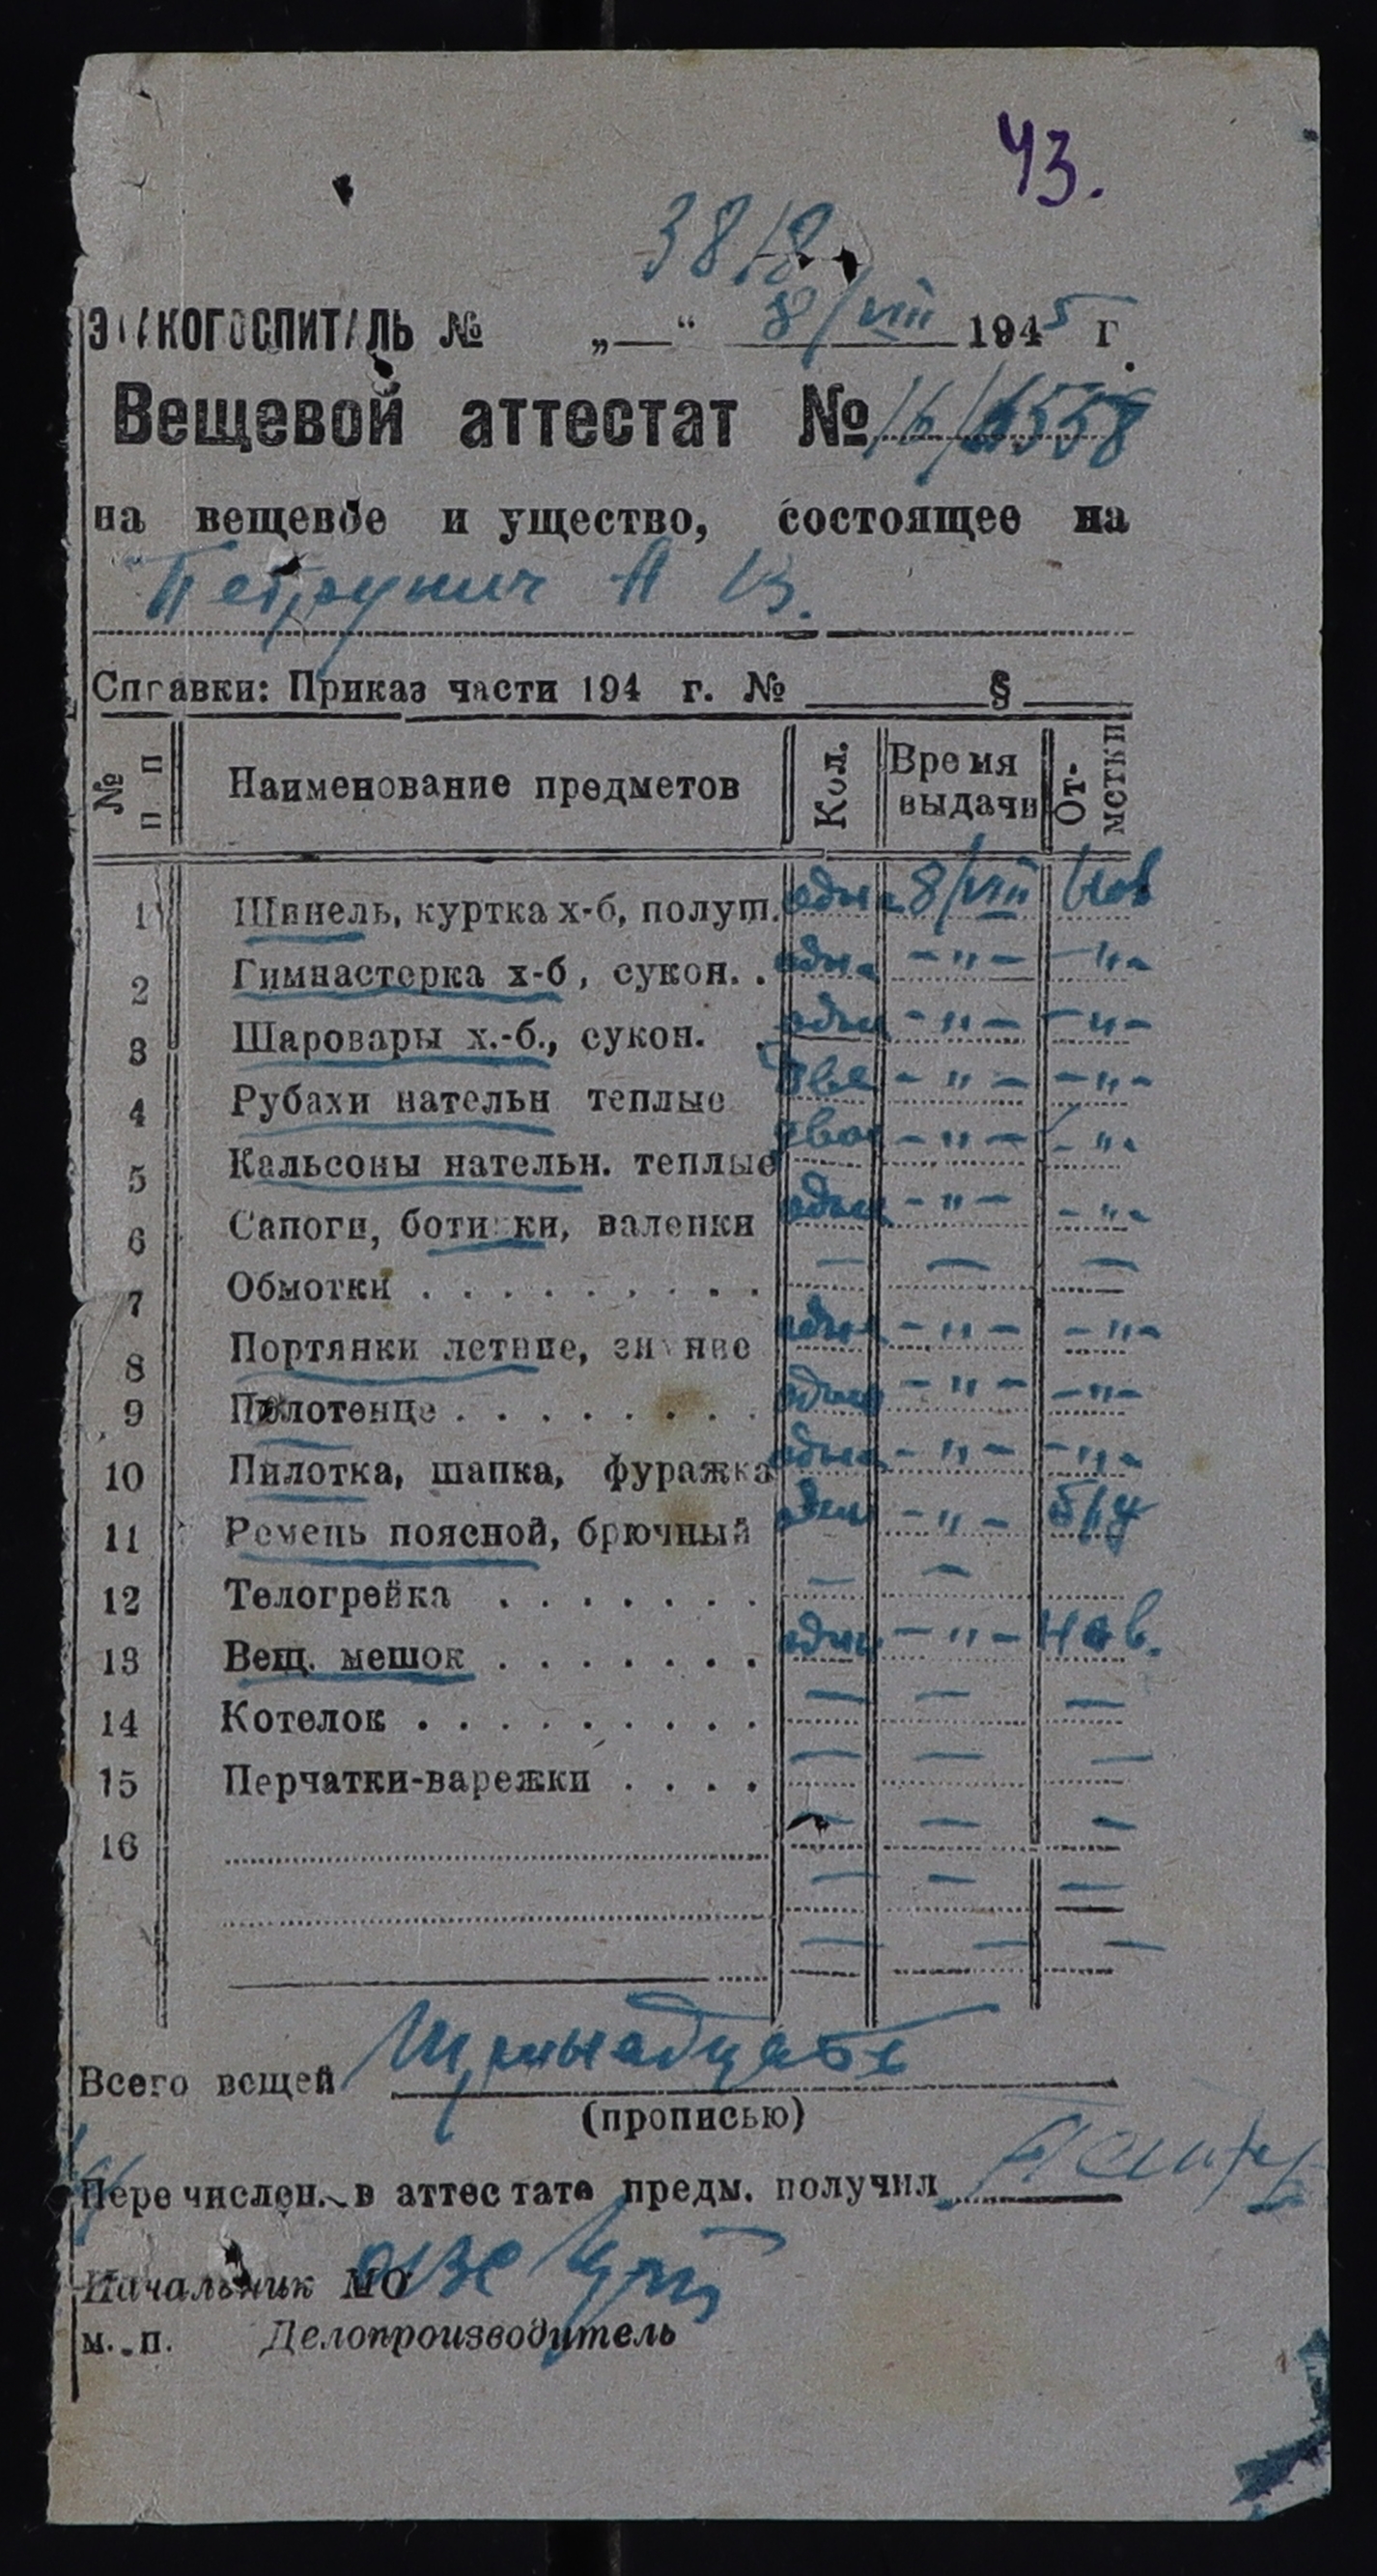 43.
3818
ЭВАКОГОСПИТАЛЬ № „—“ 8/VIII 1945 г.
Вещевой аттестат № 16/6558
на вещевое имущество, состоящее на
Петрунич А В.
Справки: Приказ части 194 г. № § 
№ п п Наименование предметов Кол. Время выдачи От-метки
1 Шинель, куртка х-б, полуш. одна 8/VIII Нов
2 Гимнастерка х-б, сукон. . одна -"- -"-
3 Шаровары х.-б., сукон. . одни -"- -"-
4 Рубахи нательн теплые две -"- -"-
5 Кальсоны нательн. теплые двое -"- -"-
6 Сапоги, ботинки, валенки одни -"- -"-
7 Обмотки . . . . . . . . . — — —
8 Портянки летние, зимние одни -"- -"-
9 Полотенце . . . . . . . . один -"- -"-
10 Пилотка, шапка, фуражка одна -"- -"-
11 Ремень поясной, брючный один -"- Б/у
12 Телогрейка . . . . . . . — —
13 Вещ. мешок . . . . . . . один -"- нов.
14 Котелок . . . . . . . . . — — —
15 Перчатки-варежки . . . . — — —
16 — — —
— — —
— — —
Всего вещей Тринадцать
(прописью)
Перечислен. в аттестате предм. получил
Начальник МО ОВС
м. п. Делопроизводитель